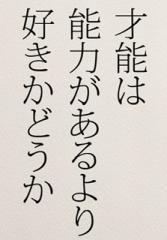 才能は
能力があるより
好きかどうか